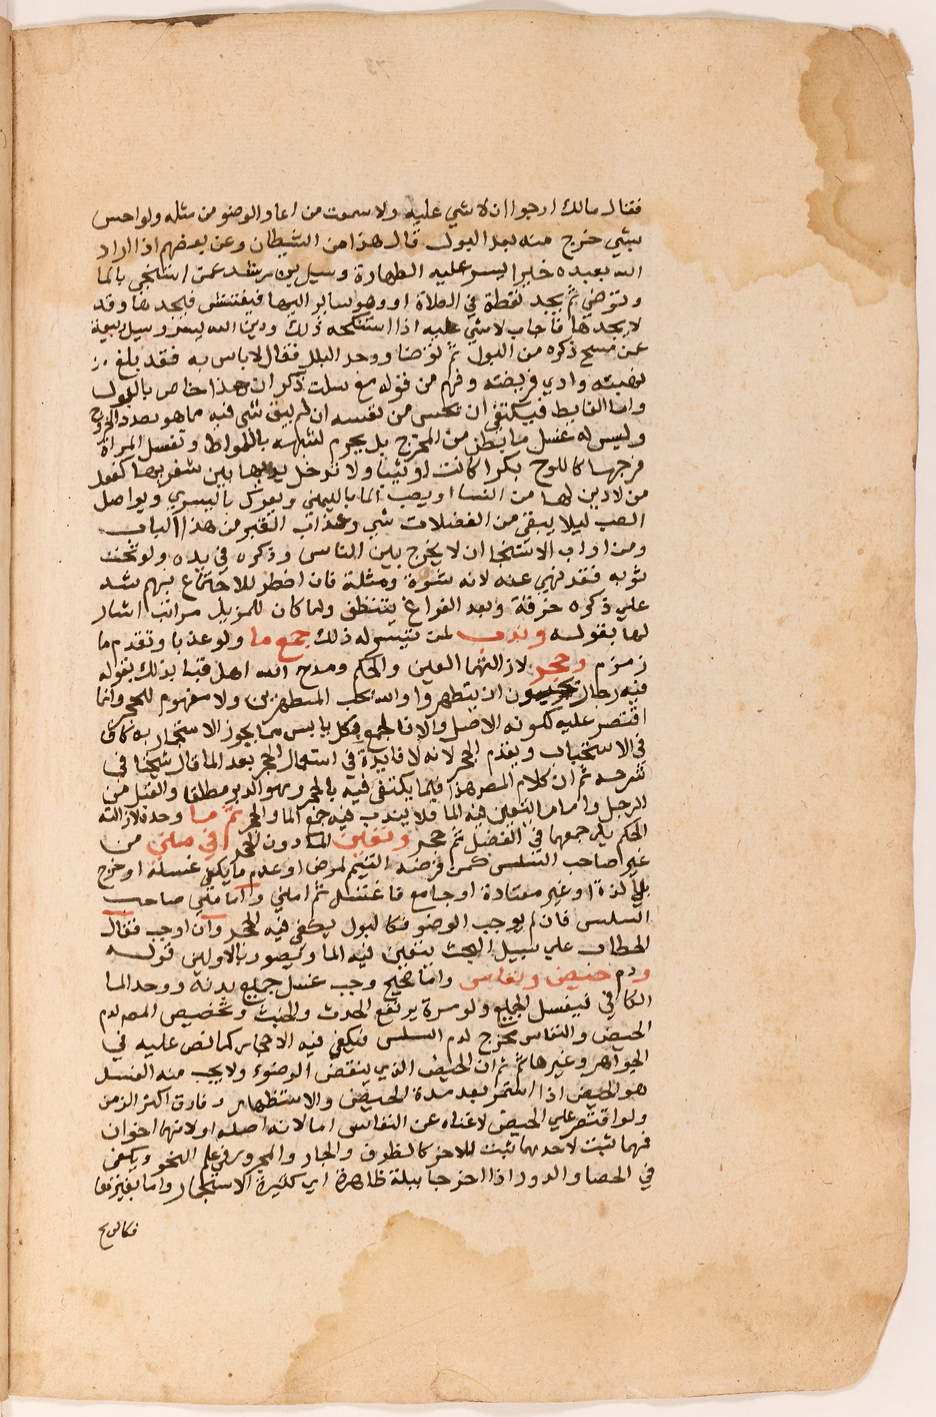 فقال مالك ارجوا ان لا شي عليه ولا سمعت من اعاد الوضو من مثله ولو احس
بشي خرج منه بعد البول قال هذا من الشيطان وعن بعضهم اذا اراد
الله بعبده خيرا يسر عليه الطهارة وسيل بن رشد عمن استنجى بالما
وتوضى ثم يجد نقطة في الصلاة او وهو ساير اليها فيفتش فيجدها وقد
لا يجدها فاجاب لا شي عليه اذا استنكحه ذلك ودين الله يسر وسيل ربيعة
عن مسح ذكره من البول ثم توضا ووجد البلل فقال لا باس به فقد بلغ
محنته وادي فريضته وفهم من قوله مع سلت ذكر ان هذا خاص بالبول
واما الغايط فيكتفى ان يحس من نفسه ان لم يبق شي فيه مما هو بصدد الخروج
وليس له غسل ما بطن من المخرج بل يحرم لشبهه باللواط وتغسل المراة
فرجها كاللوح بكرا كانت او ثيبا ولا تدخل يديها بين شفريها كفعل
من لا دين لها من النسا ويصب الما باليمنى ويعرك باليسرى ويواصل
الصب ليلا يبقى من الفضلات شي وعذاب القبر من هذا الباب
ومن اداب الاستنجا ان لا يخرج بين الناس وذكره في يده ولو تحت
ثوبه فقد نهي عنه لانه شوه ومثلة فان اضطر للاجتماع بهم شد
على ذكره خرقة وبعد الفراغ يتنظف ولما كان للمزيل مراتب اشار
لها بقوله وندب لمن تيسر له ذلك جمع ما ولو عذبا وتقدم ما
زمزم وحجر لازالتهما العين والحكم ومدح الله اهل قبا بذلك بقوله
فيه رجال يحبون ان يتطهروا والله يحب المتطهرين ولا مفهوم للحجر وانما
اقتصر عليه لكونه الاصل والا فالجمع بكل يابس مما يجوز الاستجمار به كاف
في الاستحباب ويقدم الحجر لانه لا فايدة في استعمال الحجر بعد الما قال شيخنا في
شرحه ثم ان كلام المص هذا فيما يكتفى فيه بالحجر وهو الدبر مطلقا والقبل من
الرجل واما ما يتعين فيه الما فلا يندب فيه جمع الما والحجر ثم ما وحده لازالته
الحكم يلي جمعهما في الفضل ثم حجر وتعين الما دون الحجر في مني من
غير صاحب السلس كمن فرضه التيمم لمرض او عدم ما يكفي غسله او خرج
بلا لذة او غير معتادة او جامع فاغتسل ثم امنى واما مني صاحب
السلس فان لم يوجب الوضو فكالبول يكفي فيه الحجر وان اوجب فقال
الحطاب على سبيل البحث يتعين فيه الما ويصور بالاولين قوله
ودم حيض ونفاس واما صحيح وجب غسل جميع بدنه ووجد الما
الكافي فيغسل الجميع ولو مرة يرتفع الحدث والخبث وتخصيص المص لدم
الحيض والنفاس مخرج لدم السلس فيكفي فيه الاحجار كما نص عليه في
الجواهر وغيرها ثم ان الحيض الذي ينقض الوضوء ولا يجب منه الغسل
هو الحيض اذا استمر بعد مدة الحيض والاستظهار وفارق اكثر الزمن
ولو اقتصر على الحيض لاغناه عن النفاس اما لانه اصله او لانهما اخوان
فهما ثبت لاحدهما ثبت للاخر كالظرف والجار والمجرور في علم النحو ويكفي
في الحصا والدود اذا خرجا ببلة ظاهرة اي كثيرة الاستجمار واما بغيرها
فكالريح